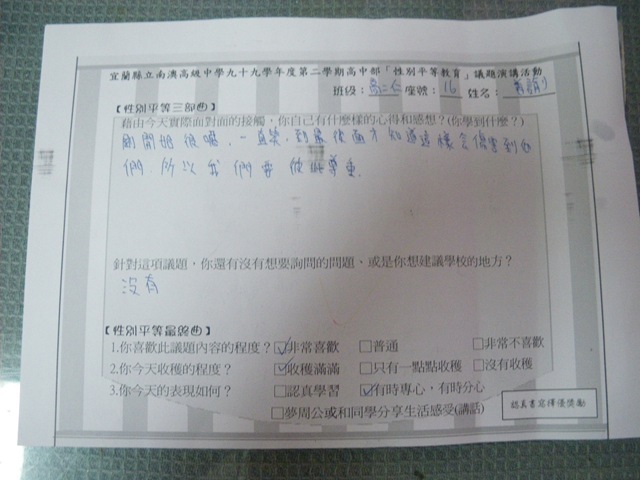 宜蘭縣立南澳高級中學九十九學年度第二學期高中部「性別平等教育」議題演講活動
班級：高二仁 座號：16 姓名：
【性別平等三部曲】
藉由今天實際面對面的接觸，你自己有什麼樣的心得和感想？(你學到什麼？)
剛開始很嗨，一直笑，到最後面才知道這樣會傷害到他
們，所以我們要彼此尊重
針對這項議題，你還有沒有想要詢問的問題、或是你想建議學校的地方？
沒有
【性別平等最終曲】
1.你喜歡此議題內容的程度？☑非常喜歡 □普通 □非常不喜歡
2.你今天收穫的程度？ ☑收穫滿滿 □只有一點點收穫 □沒有收穫
3.你今天的表現如何？ □認真學習 ☑有時專心，有時分心
□夢周公或和同學分享生活感受(講話)
認真書寫擇優獎勵